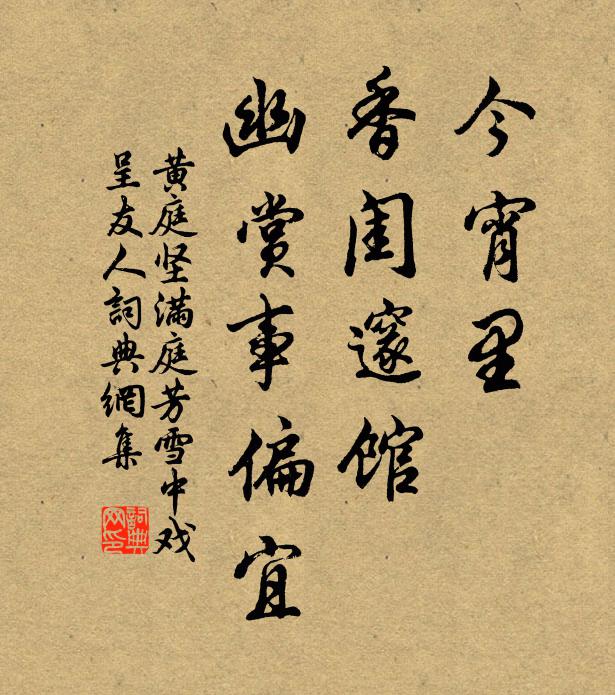 今宵里
香闺邃馆
幽赏事偏宜
黄庭坚满庭芳雪中戏
呈友人詞典網集
詞典
网印